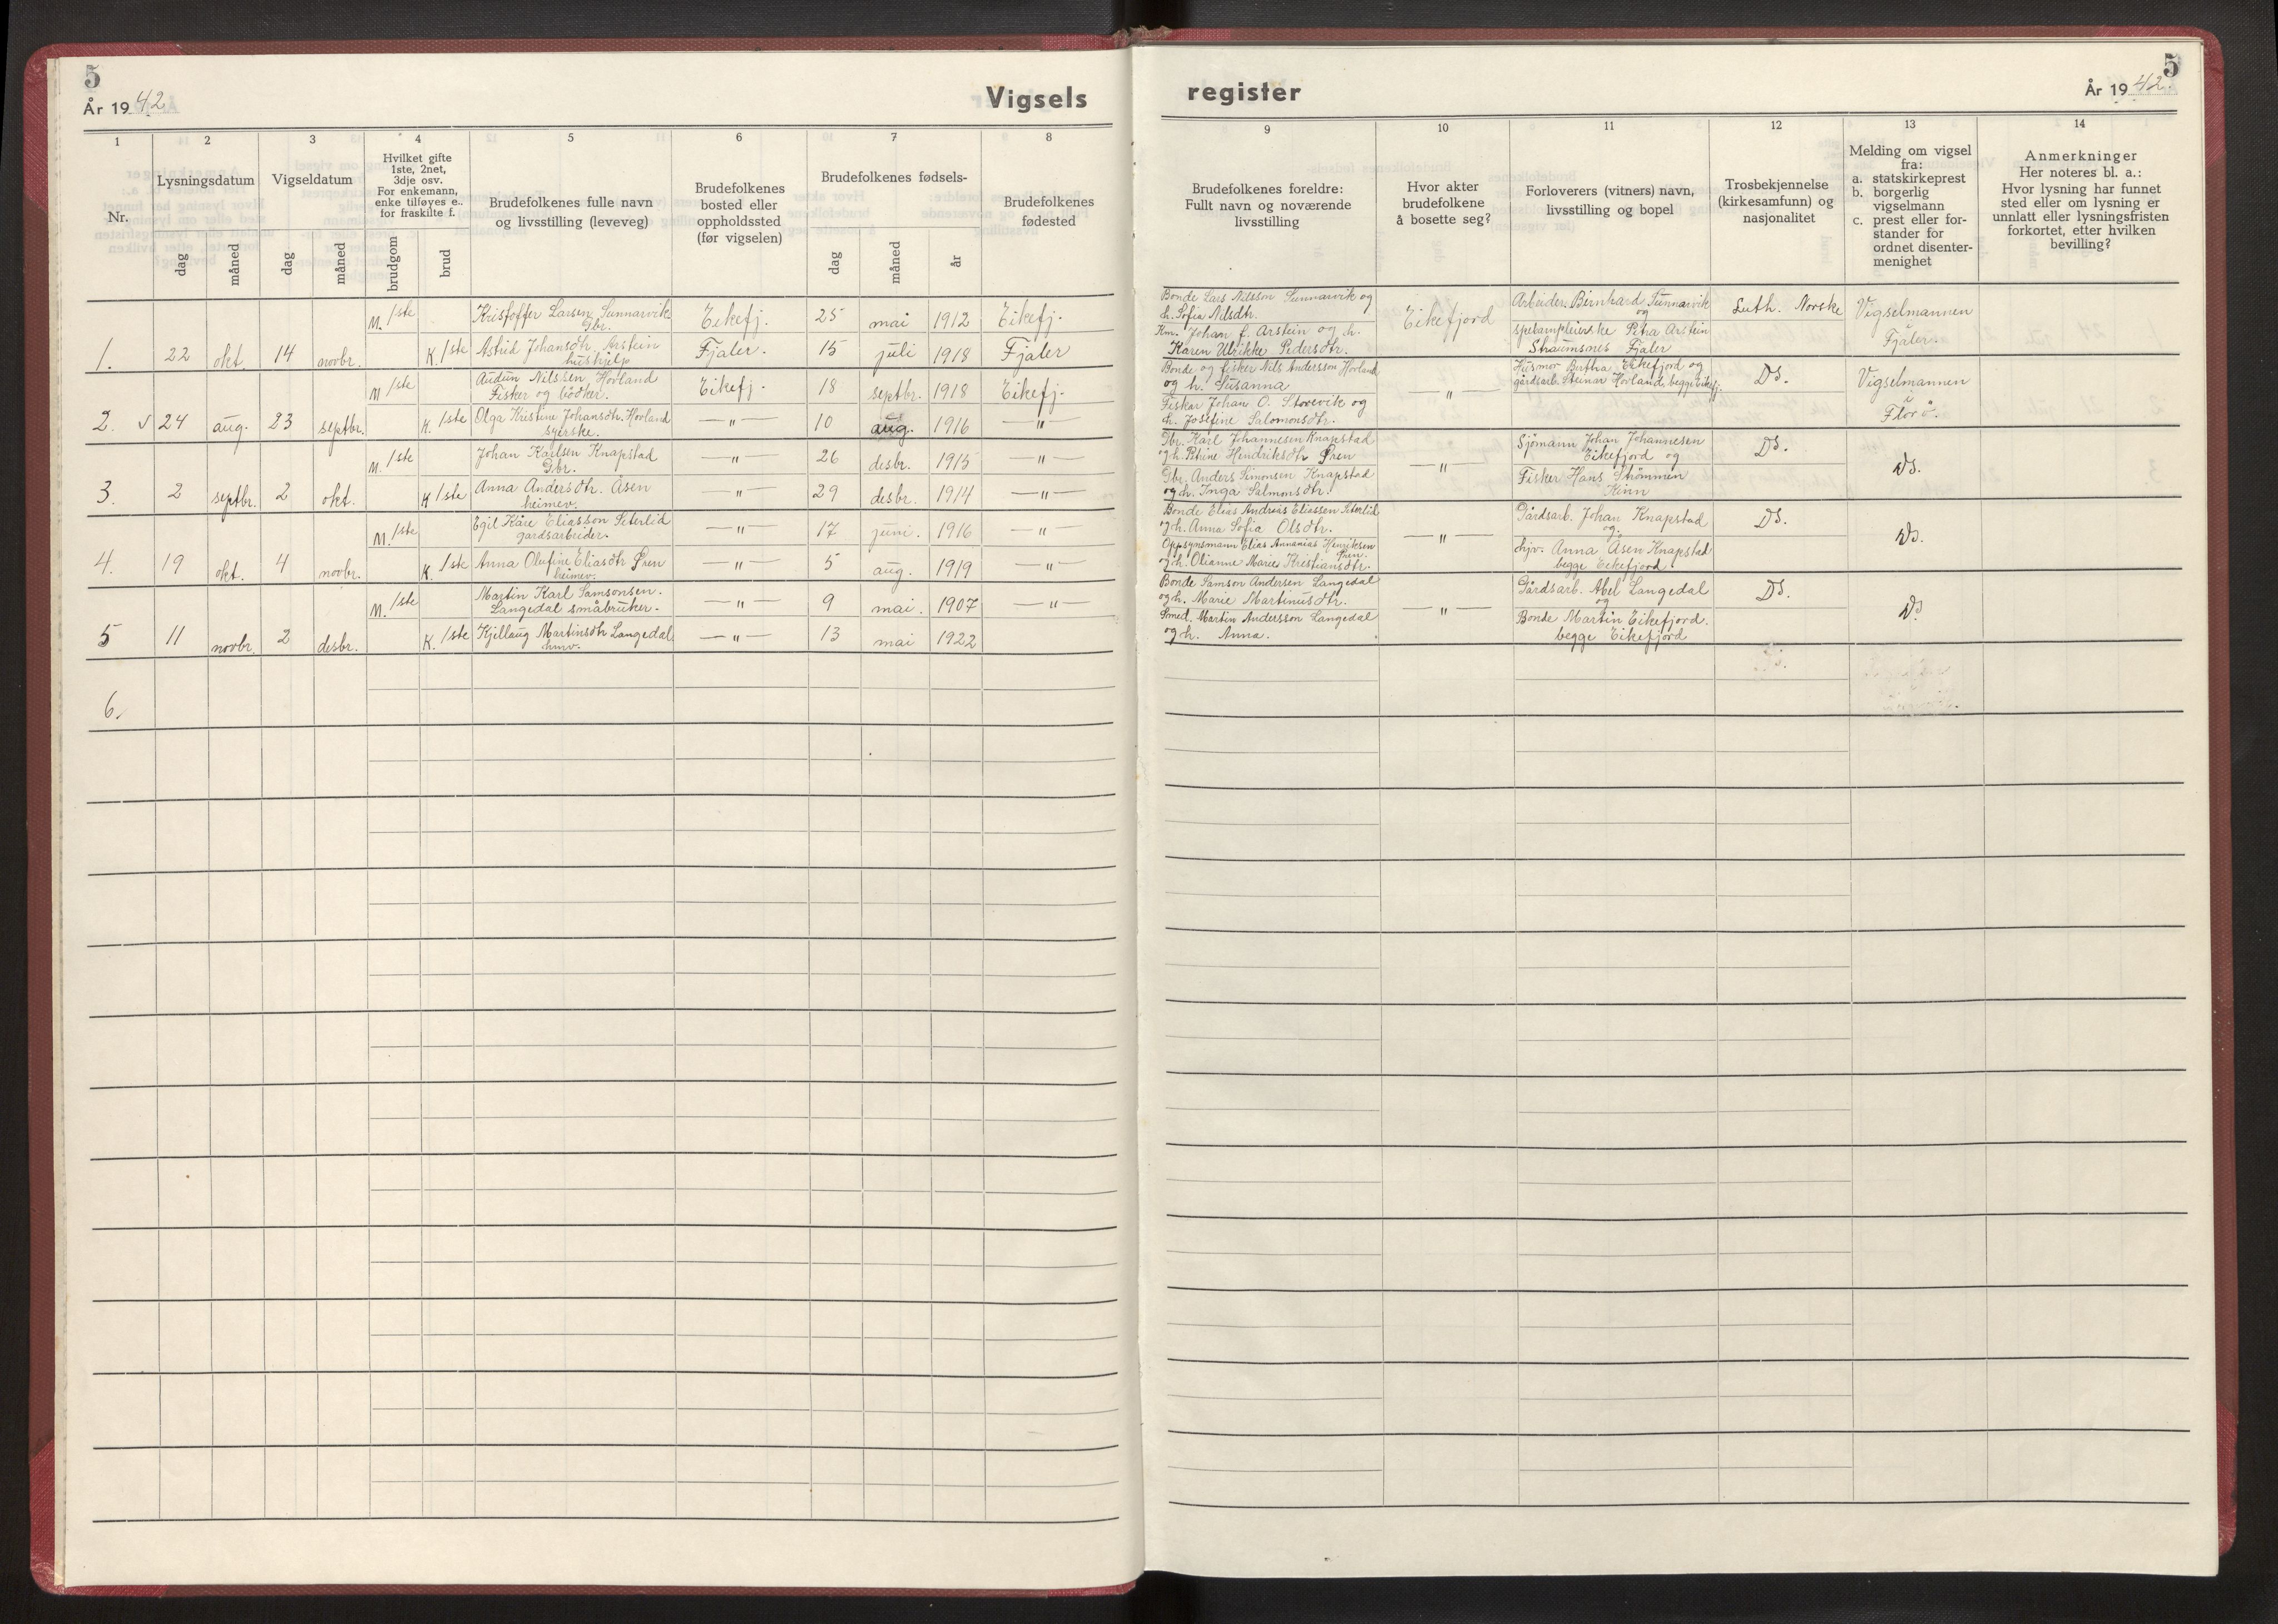 5
År 1942
Vigsels
1
2
3
4
5
6
7
8
Nr.
Lysningsdatum
dag
måned
Vigseldatum
dag
måned
Hvilket gifte
1ste, 2net,
3dje osv.
For enkemann,
enke tilføyes e.,
for fraskilte f.
brudgom
brud
Brudefolkenes fulle navn
og livsstilling (leveveg)
Brudefolkenes
bosted eller
oppholdssted
(før vigselen)
Brudefolkenes fødsels-
dag
måned
år
Brudefolkenes
fødested
M. 1ste Kristoffer Larsen Sunnarvik Eikefj. 25 mai 1912 Eikefj.
Gbr.
1. 22 okt 14 novbr. K. 1ste Astrid Johansdtr Arstein Fjaler. 15 juli 1918 Fjaler
hushjelp
M 1ste Audun Nilssen Hovland Eikefj. 18 septbr. 1918 Eikefj.
Fisker og bödker.
2. √ 24 aug. 23 septbr. K. 1ste Olga Kristine Johansdtr. Hovland —"— 10 aug. 1916 —"—
syerske.
M. 1ste Johan Karlsen Knapstad —"— 26 desbr. 1915 —"—
Gbr.
3. 2 septbr. 2 okt. K 1ste Anna Andersdtr. Åsen —"— 29 desbr. 1914 —"—
heimev.
M. 1ste Egil Kåre Eliasson Seterlid —"— 17 juni 1916 —"—
gardsarbeider.
4. 19 okt. 4 novbr. K. 1ste Anna Olufine Eliasdtr Øren —"— 5 aug. 1919 —"—
heimev.
M. 1ste Martin Karl Samsonsen. —"— 9 mai. 1907 —"—
Langedal småbruker.
5 11 novbr. 2 desbr. K. 1ste Kjellaug Martinsdtr Langedal. —"— 13 mai 1922
hmv.
6.
register
År 1942.
5
9
10
11
12
13
14
Brudefolkenes foreldre:
Fullt navn og noværende
livsstilling
Hvor akter
brudefolkene
å bosette seg?
Forloverers (vitners) navn,
livsstilling og bopel
Trosbekjennelse
(kirkesamfunn) og
nasjonalitet
Melding om vigsel
fra:
a. statskirkeprest
b. borgerlig
vigselmann
c. prest eller for-
stander for
ordnet disenter-
menighet
Anmerkninger
Her noteres bl. a.:
Hvor lysning har funnet
sted eller om lysning er
unnlatt eller lysningsfristen
forkortet, etter hvilken
bevilling?
Bonde Lars Nilsson Sunnarvik og
h. Sofia Nilsdtr.
Km. Johan f. Arstein og h.
Karen Ulrikke Pedersdtr.
Eikefjord
Arbeider. Birnhard Sunnarvik
og
Petra Arstein
Straumsnes Fjaler
Luth. Norske
Vigselmannen
i
Fjaler.
Bonde og fisker Nils Andersson Hovland
og h. Susanna
Fiskar Johan O. Storevik og
h. Josefine Salomonsdtr.
—"—
Husmor Bertha Eikefjord og
gårdsarb. Steinar Hovland, begge Eikefj.
Ds.
Vigselmannen
i
Florö.
Gbr. Karl Johannesen Knapstad
og h. Petrine Hendriksdtr Øren
Gbr. Anders Simonsen Knapstad
og h. Inga Salmonsdtr.
—"—
Sjömann Johan Johannesen
Eikefjord og
Fisker Hans Strömmen
Kinn
Ds.
Ds.
Bonde Elias Andreas Eliassen Seterlid
og h. Anna Sofia Olsdtr.
Oppsynsmann Elias Annanias Henriksen
Øren.
og h. Olianne Marie Kristiansdtr.
—"—
Gårdsarb. Johan Knapstad
og.
hjv. Anna Åsen Knapstad
begge Eikefjord
Ds.
Ds.
Bonde Samson Andersen Langedal
og h. Marie Martinusdtr.
Smed. Martin Andersson Langedal
og h. Anna.
—"—
Gårdsarb. Abel Langedal
og
Bonde Martin Eikefjord.
begge Eikefjord
Ds.
Ds.